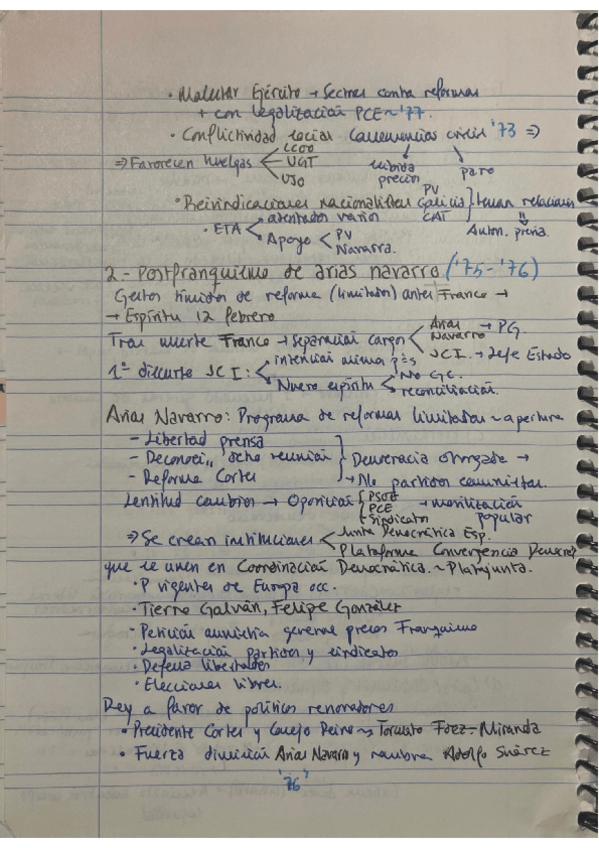 · Malestar Ejército → Sectores contra reformas
+ con legalización PCE ~ '77.
· Conflictividad social Consecuencias crisis '73 ⇒
⇒ Favorecen huelgas CCOO UGT USO subida precios paro
· Reivindicaciones nacionalistas PV Galicia CAT tensan relaciones
· ETA atentados varios Apoyo PV Navarra. Auton. previa.
2.- Postfranquismo de arias navarro ('75-'76)
Gestos tímidos de reforma (limitados) antes + Franco →
→ Espíritu 12 febrero
Tras muerte Franco → Separación cargos Arias Navarro → PG. JCI. → Jefe Estado
1º discurso JCI: intención misma Nuevo espíritu No GC. reconciliación.
Arias Navarro: Programa de reformas limitadas ~ apertura
- Libertad prensa
- Reconoci,, dcho reunión Democracia otorgada →
- Reforma Cortes → No partidos comunistas.
Lentitud cambios → Oposición PSOE PCE Sindicatos → movilización popular
⇒ Se crean instituciones Junta Democrática Esp.
Plataforma Convergencia Democrát
que se unen en Coordinación Democrática. ~ Platajunta.
· P vigentes de Europa occ.
· Tierno Galván, Felipe González
- Petición amnistía general presos Franquismo
· Legalización partidos y sindicatos
· Defensa libertades
· Elecciones libres.
Rey a favor de políticos renovadores
· Presidente Cortes y Consejo Reino ~> Torcuato Fdez-Miranda
· Fuerza dimisión Arias Navarro y nombra Adolfo Suárez
'76'